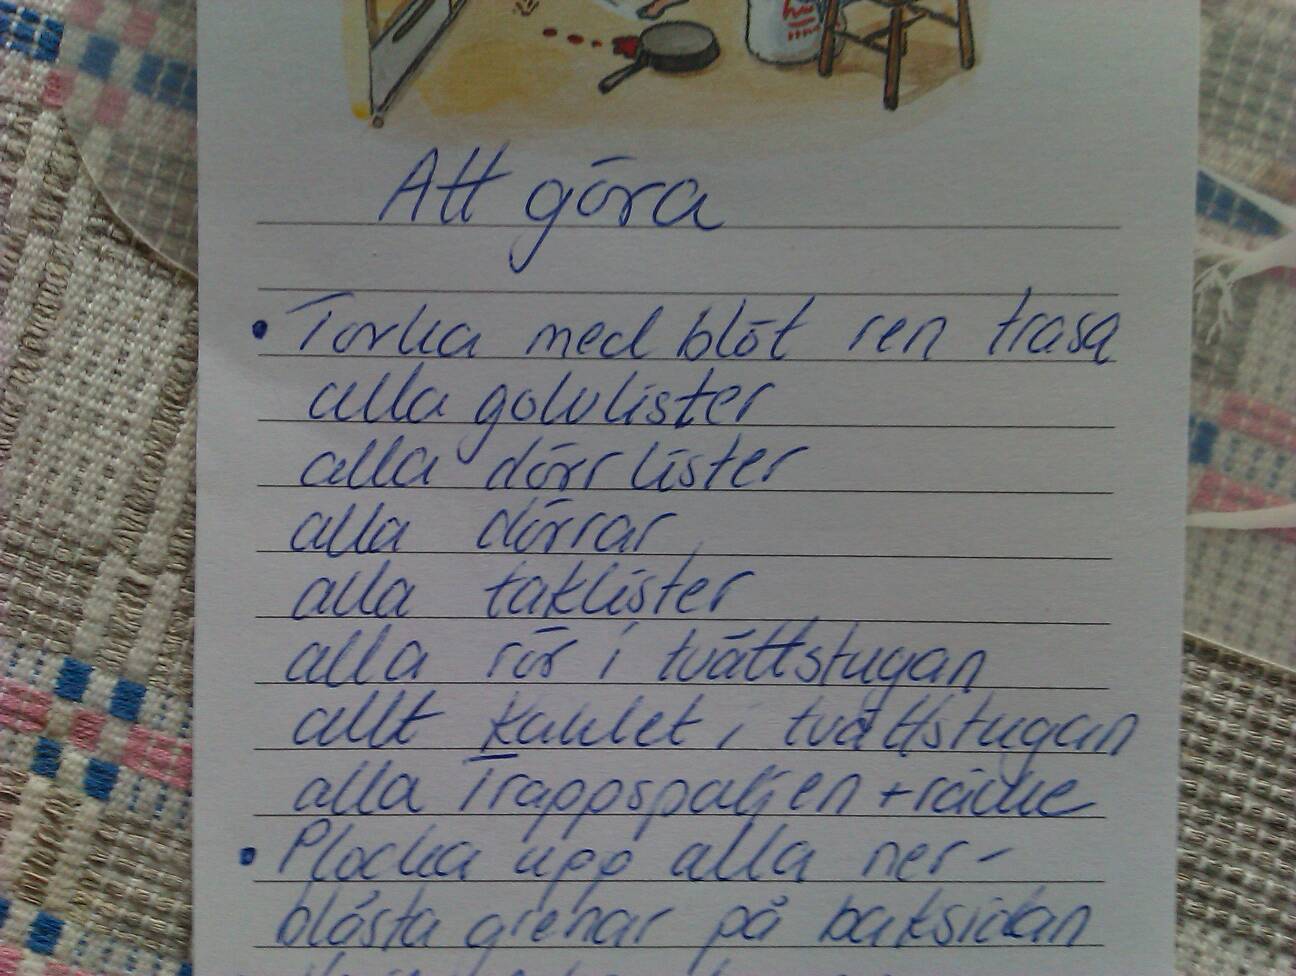 Att göra
• Torka med blöt ren trasa
alla golvlister
alla dörrlister
alla dörrar
alla taklister
alla rör i tvättstugan
allt kaklet i tvättstugan
alla Trappspaljen + räcke
• Plocka upp alla ner-
blåsta grenar på baksidan